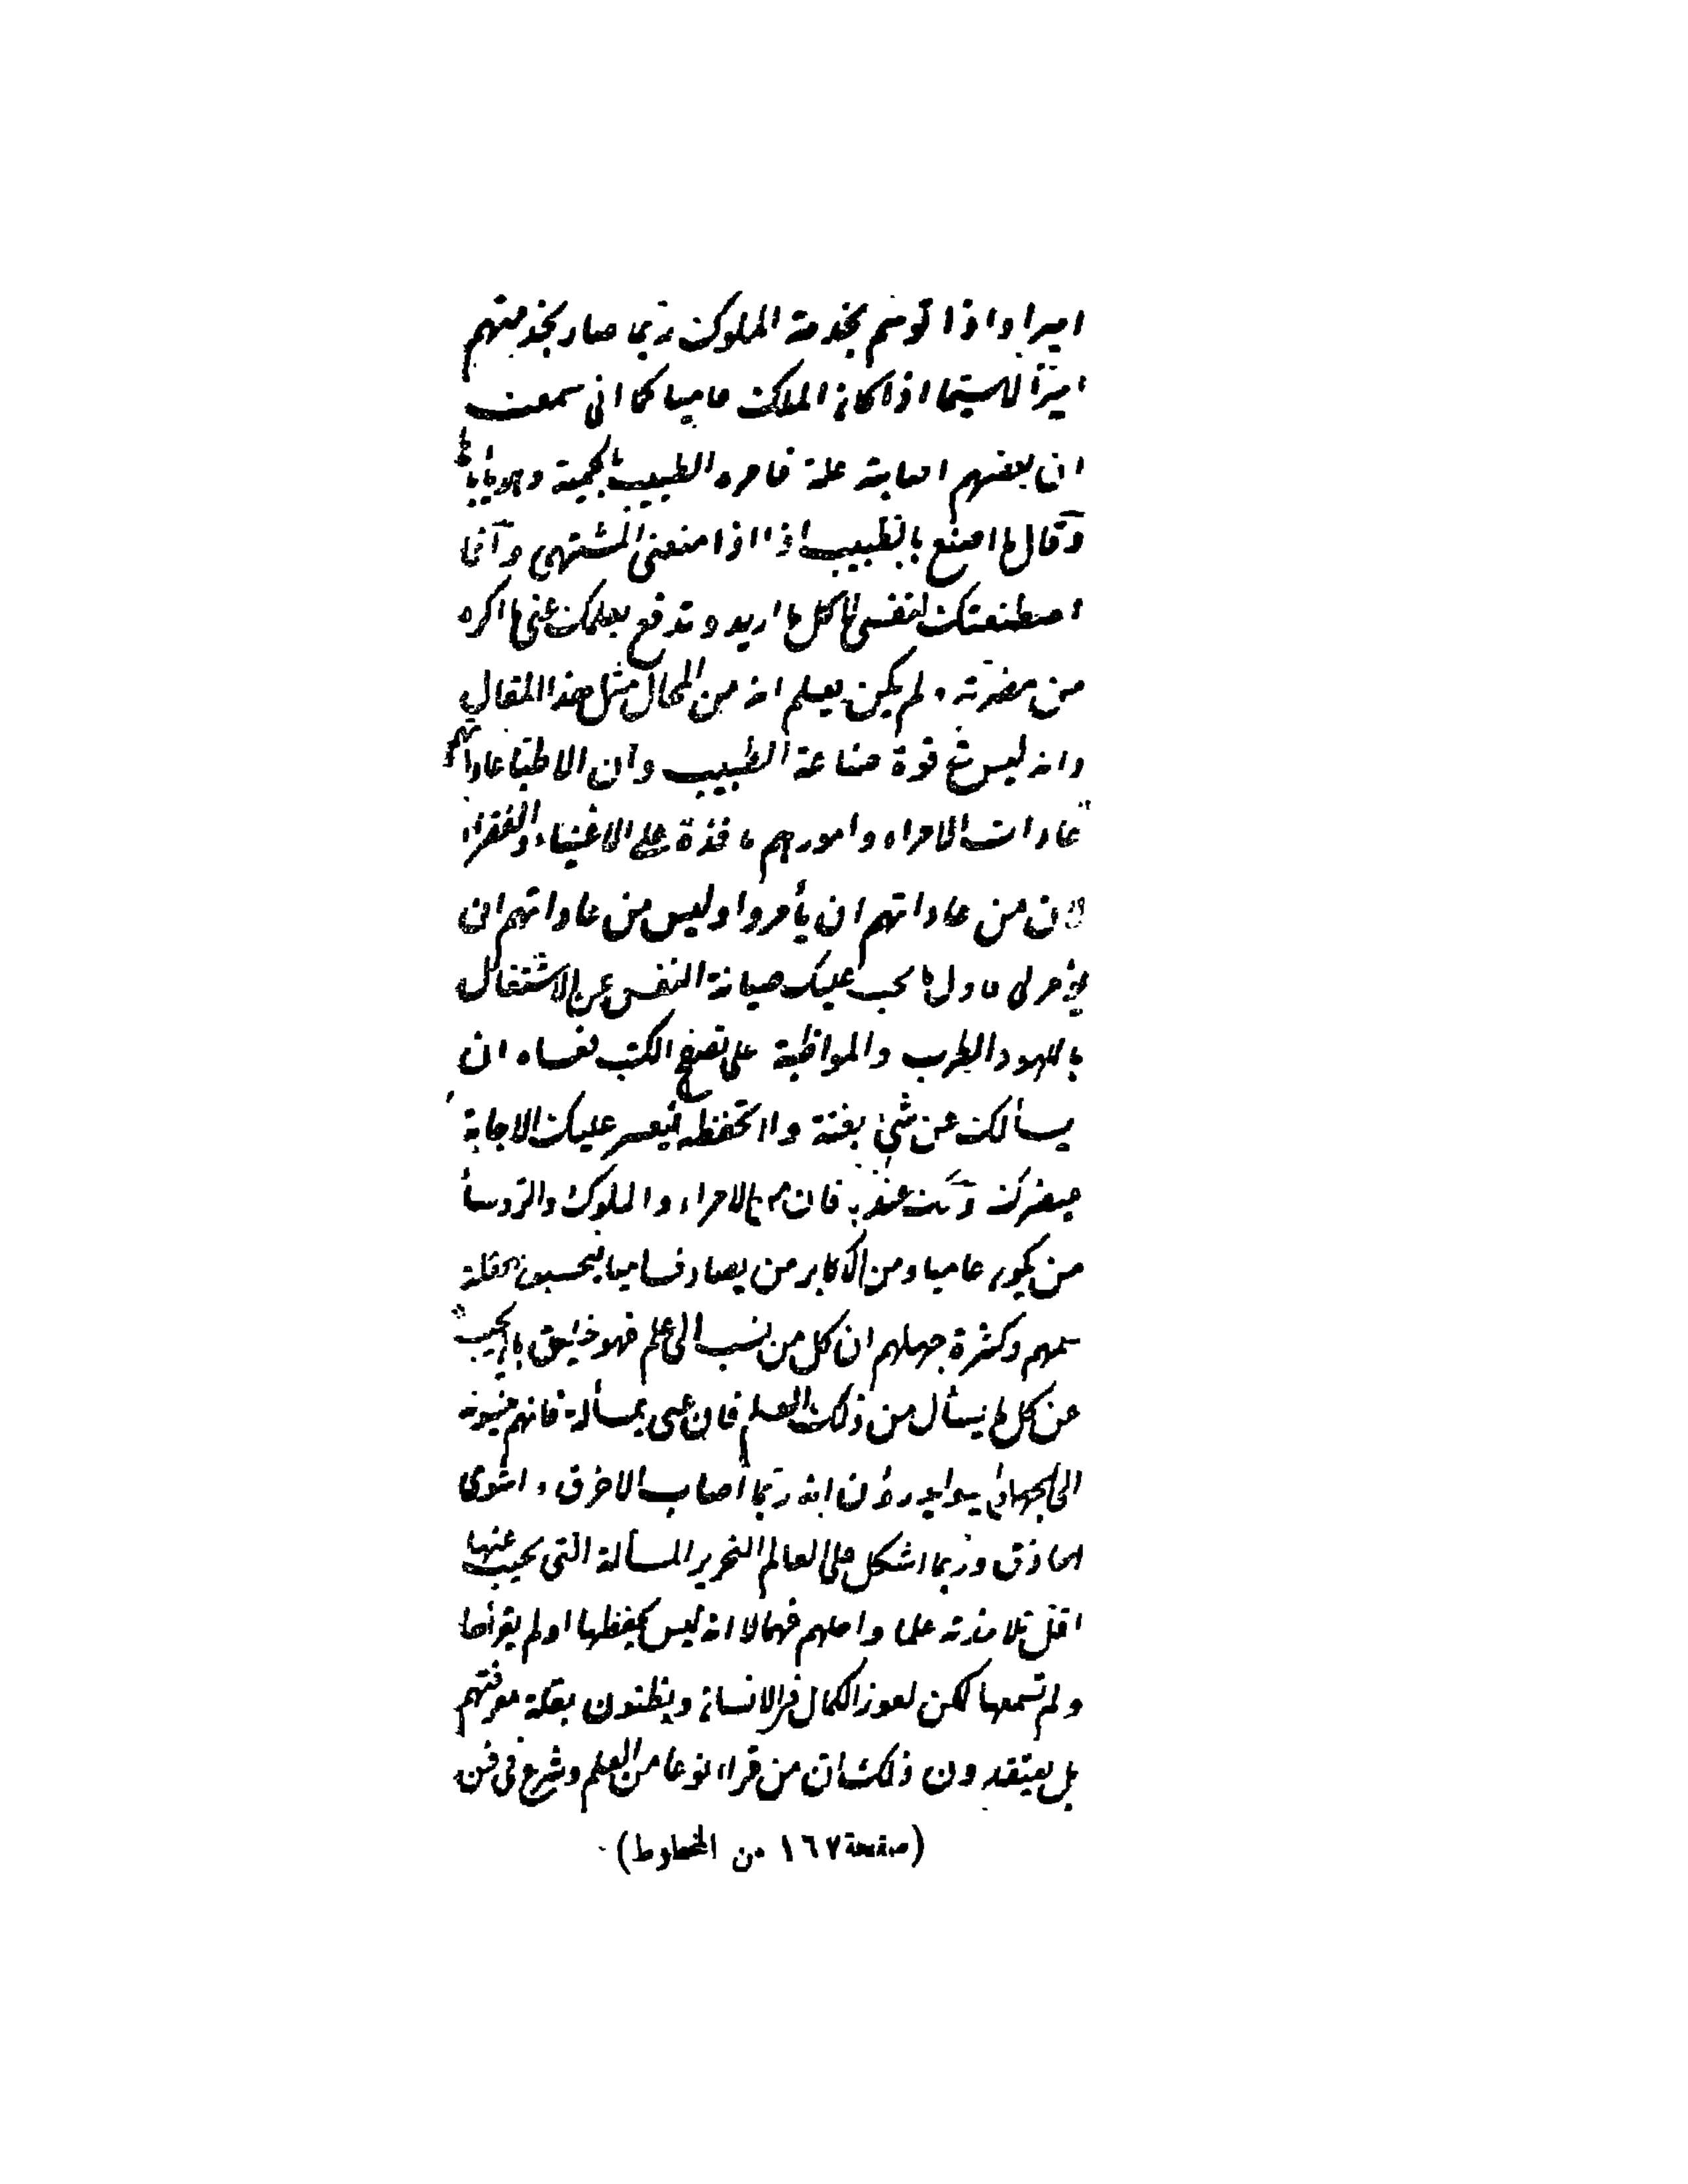 اميرا واذا توسم بخدمة الملوك ربما صار بخدمتهم
اميرًا لاسيما اذا كان الملك عاميا كما انى سمعت
ان بعضهم اصابته علة فامره الطبيب بالحمية وهو يأباها
وقال ما اصنع بالطبيب اذا اذا منعنى المشتهى وانما
اصطنعتك لنفسى لآكل ما اريد وتدفع بعلمك عنى ما اكره
من مضرته ولم يكن يعلم انه من المحال مثل هذا المقال
وانه ليس فى قوة صناعة الطبيب وان الاطبا عاداتهم
عادات الامراء وامورهم نافذة على الاغنياء والفقراء
لان من عاداتهم ان يأمروا وليس من عاداتهم ان
يؤمر لى ما يجب عليك صيانة النفس عن الاشتغال
باللهو والطرب والمواظبة على تصفح الكتب فعساه ان
يسألك عن شئ بغتة ولا تحفظه فيعسر عليك الاجابة
فيضرك ذلك عنده فان من الامراء والملوك والرؤسا
من يكون عاميا ومن الاكابر من يصادف اميا فيحسبون لقلة
علمهم وكثرة جهلهم ان كل من نسب الى علم فهو خليق بان يجيب
عن كل ما يسأل من ذلك العلم فان عى بمسألة فانهم ينسبونه
الى الجهل ولا يدرون انه ربما اصاب الاخرق واشوى
الحاذق وربما اشكل على العالم النحرير المسألة التى يجيب عنها
اقل تلامذته علما واصلهم فهما لا انه ليس يحفظها او لم يقرأها
ولم تسمعها لكن لعوز الكمال فى الانسان ويظنون بقلة معرفتهم
بل يعتقدون ذلك ان من قراء نوعا من العلم وشرع فى فن
(صفحة ١٦٧ من المخطوط)